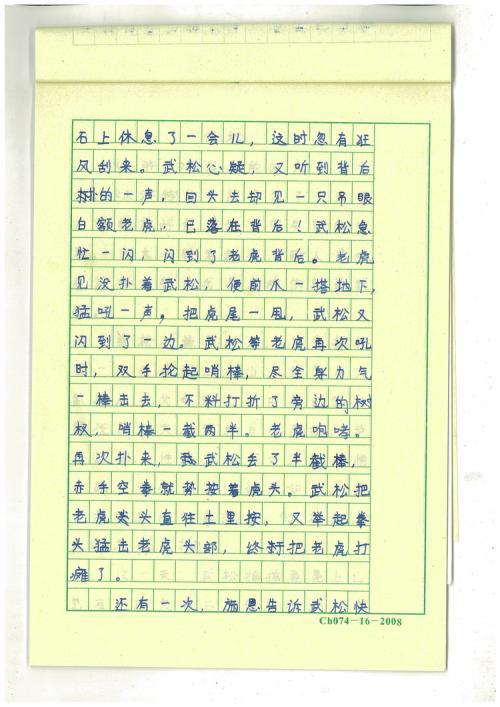 石上休息了一会儿，这时忽有狂
风刮来。武松心疑，又听到背后
扑的一声，回头去却见一只吊眼
白额老虎，已落在背后！武松急
忙一闪，闪到了老虎背后。老虎
见没扑着武松，便前爪一搭地下，
猛吼一声。把虎尾一甩，武松又
闪到了一边。武松等老虎再次吼
时，双手抡起哨棒，尽全身力气
一棒击去，不料打折了旁边的树
杈，哨棒一截两半。老虎咆哮。
再次扑来，武松丢了半截棒，
赤手空拳就势按着虎头。武松把
老虎头直往土里按，又举起拳
头猛击老虎头部，终于把老虎打
瘫了。
还有一次，施恩告诉武松快
Ch074-16-2008